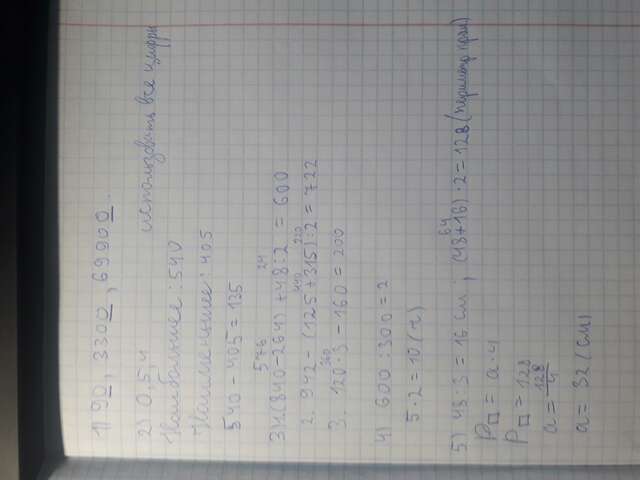 1) 90, 3300, 69900.
2) 0, 5, 4 использовать все цифры
Наибольшее: 540
Наименьшее: 405
540 - 405 = 135
576 24
3) 1. (840 - 264) + 48 : 2 = 600
440 220
2. 942 - (125 + 315) : 2 = 722
360
3. 120 · 3 - 160 = 200
4) 600 : 300 = 2
5 · 2 = 10 (ч)
64
5) 48 : 3 = 16 см ; (48 + 16) · 2 = 128 (периметр прям)
P□ = a · 4
P□ = 128
a = 128/4
a = 32 (см)